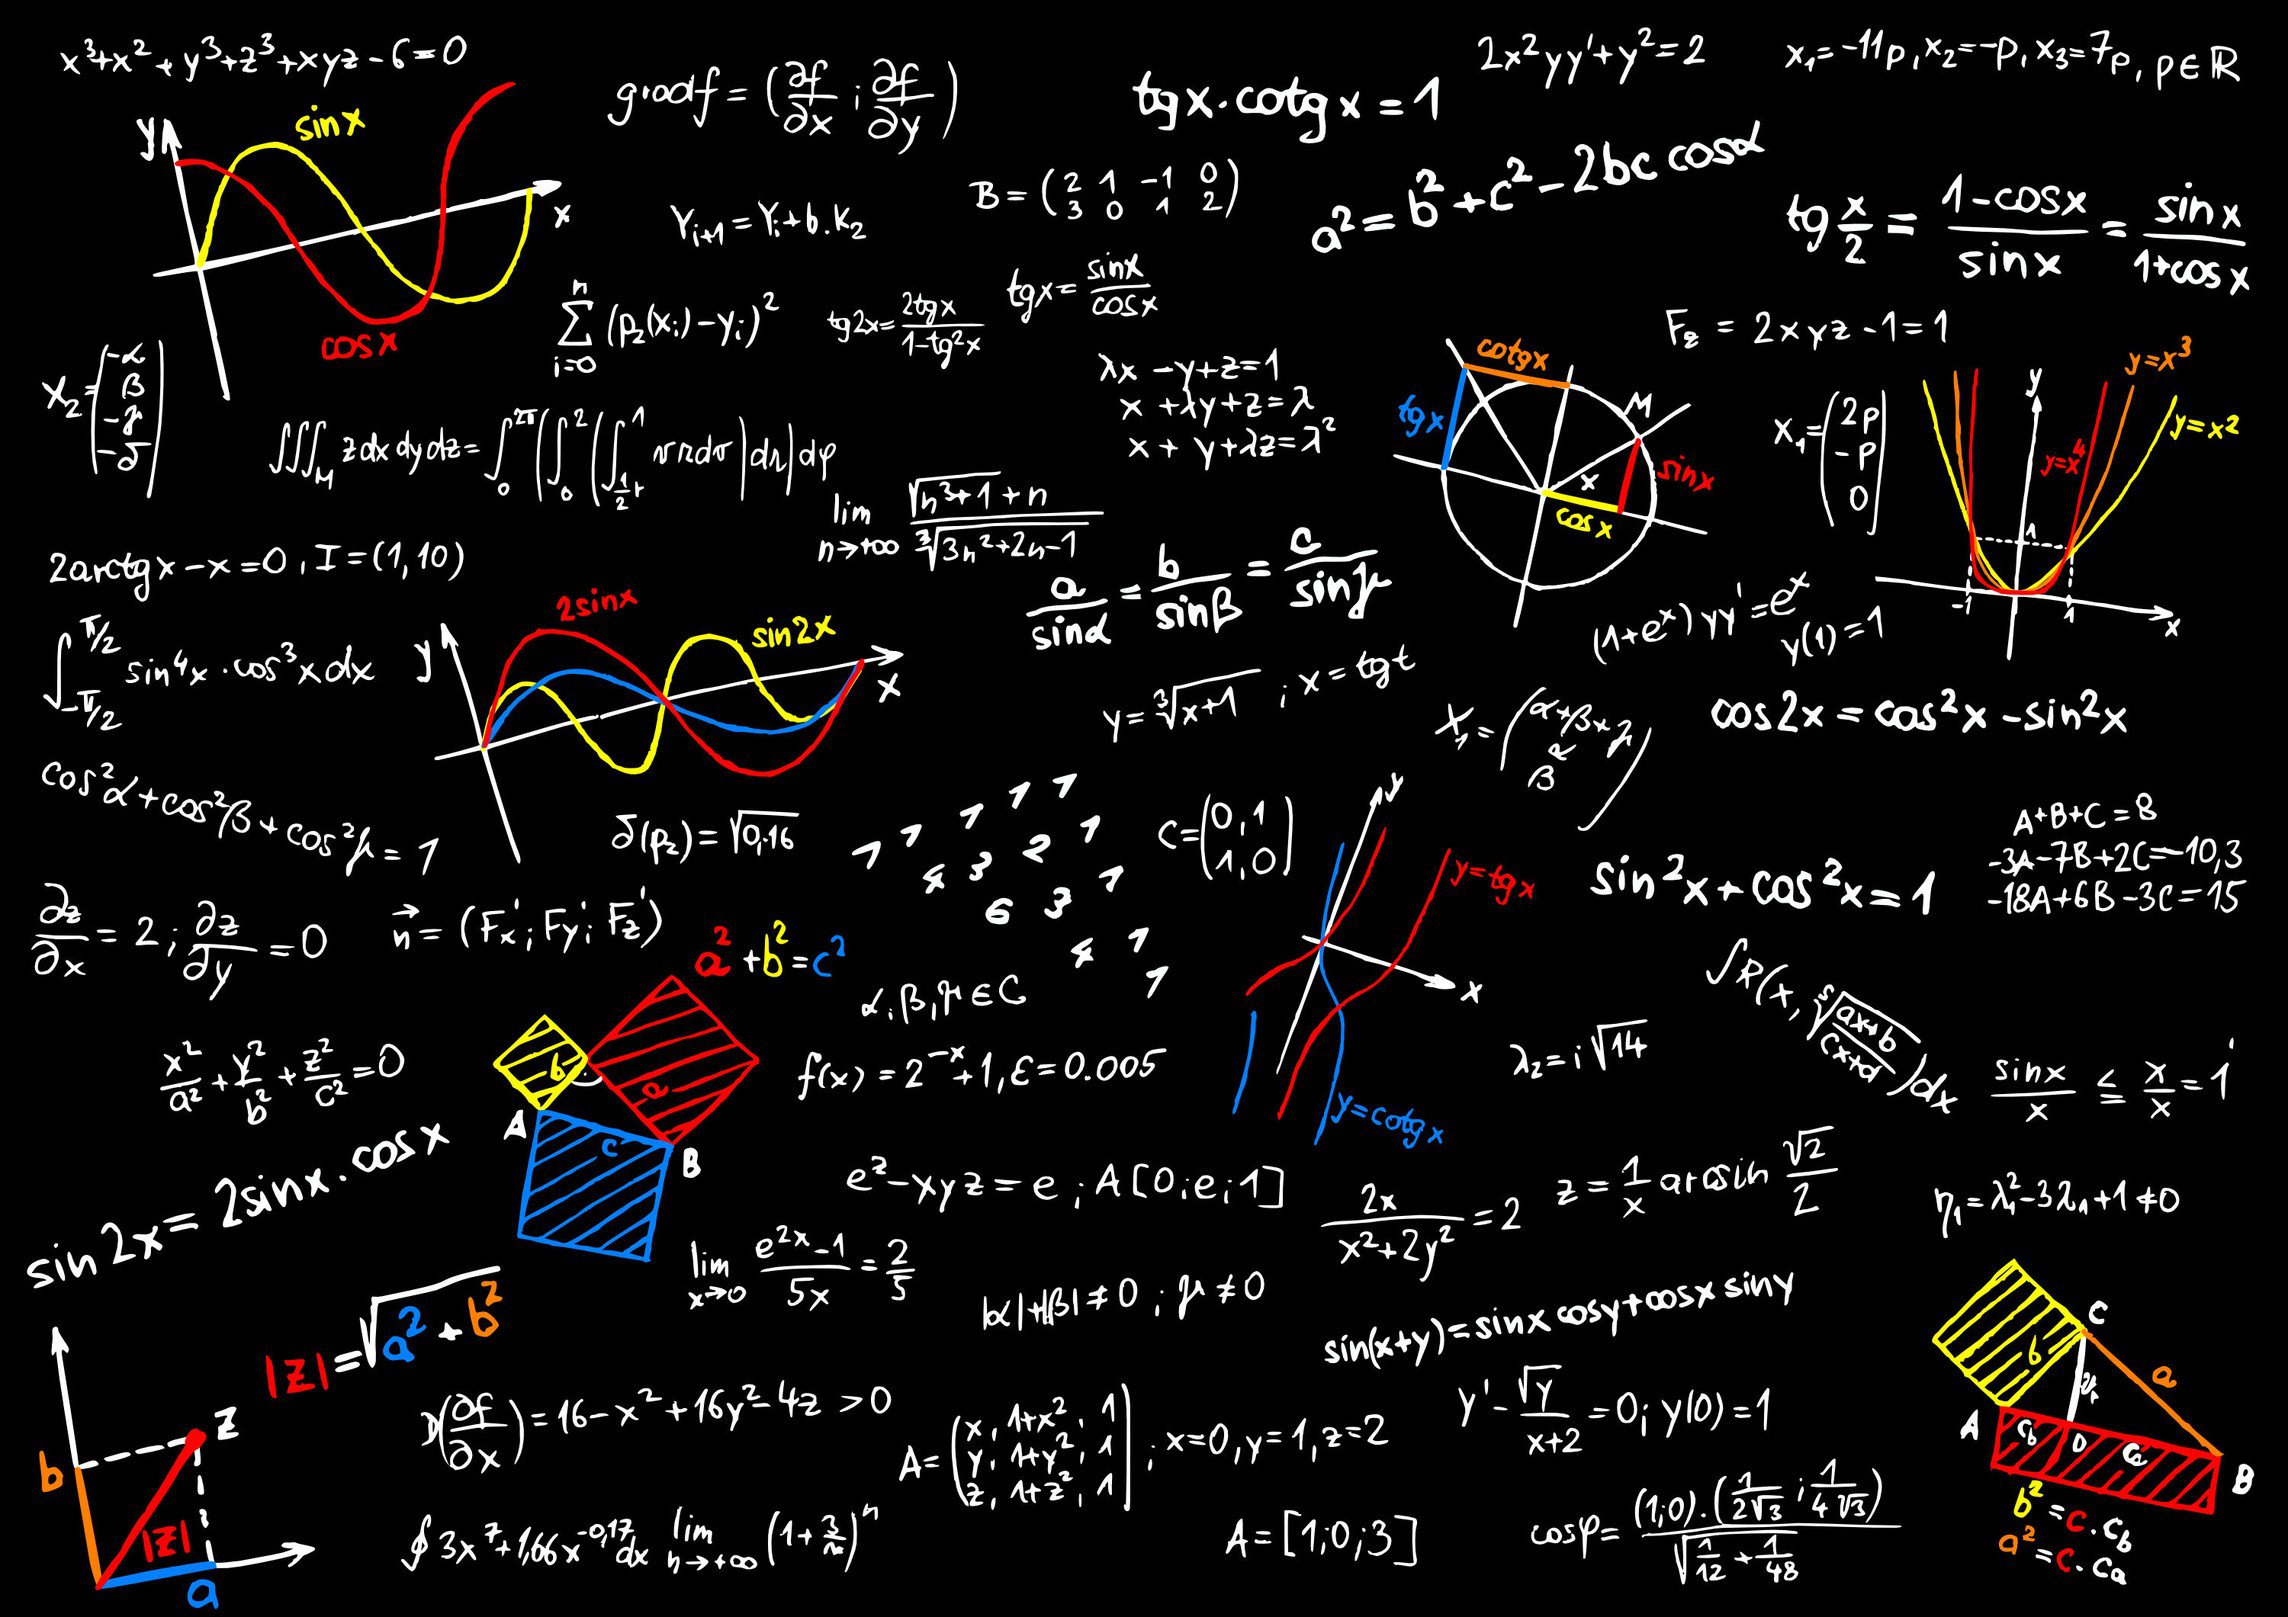 x³+x²+y³+z³+xyz-6=0
gradf=(∂f/∂x;∂f/∂y)
tgx·cotgx=1
2x²yy'+y²=2
x₁=-11p,x₂=-p,x₃=7p,p∈ℝ
y
sinx
x
cosx
Yᵢ₊₁=Yᵢ+b.K₂
B=(2 1 -1 0
3 0 1 2)
a²=b²+c²-2bc cosα
tg x/2 = (1-cosx)/sinx = sinx/(1+cosx)
∑ⁿᵢ₌₀(p₂(xᵢ)-yᵢ)²
tg2x=2tgx/(1-tg²x)
tgx=sinx/cosx
F_z=2xyz-1=1
X₂=(-α
β
-γ
-δ)
λx-y+z=1
x+λy+z=λ
x+y+λz=λ²
cotgx
tgx
M
sinx
x
cosx
X₁=(2p
-p
0)
y
y=x³
y=x²
y=x⁴
1
-1
1
x
∭_M zdxdydz=
lim n→+∞ (√(n³+1)+n)/∛(3n²+2n-1)
2arctgx-x=0,I=(1,10)
a/sinα=b/sinβ=c/sinγ
(1+eˣ)yy'=eˣ
y(1)=1
∫_{-π/2}^{π/2} sin⁴x·cos³xdx
y
2sinx
sin2x
x
y=∛(x+1) ; x=tgt
X₁=(α+β+γ
α
β)
cos2x=cos²x-sin²x
cos²α+cos²β+cos²γ=1
δ(p₂)=√0,16
1 1 1 1 1
4 3 2 1
6 3 1
4 1
1
C=(0,1
1,0)
y
y=tgx
x
y=cotgx
sin²x+cos²x=1
A+B+C=8
-3A-7B+2C=-10,3
-18A+6B-3C=15
∂z/∂x=2;∂z/∂y=0
n⃗=(Fx';Fy;Fz')
a²+b²=c²
b
a
c
A
B
α,β,γ∈C
∫R(x, ˢ√((ax+b)/(cx+d)))dx
x²/a²+y²/b²+z²/c²=0
f(x)=2⁻ˣ+1,ε=0.005
λ₂=i√14
sinx/x ≤ x/x=1
sin2x=2sinx·cosx
e^z-xyz=e;A[0;e;1]
2x/(x²+2y²)=2
z=1/x arcsin √2/2
η₁=λ₁²-3λ₁+1≠0
lim x→0 (e²ˣ-1)/5x=2/5
|α|+|β|≠0 ; γ≠0
sin(x+y)=sinx cosy+cosx siny
|z|=√(a²+b²)
z
b
|z|
a
D(∂f/∂x)=16-x²+16y²-4z>0
A=(x,1+x²,1
y,1+y²,1
z,1+z²,1);x=0,y=1,z=2
y'-√y/(x+2)=0;y(0)=1
C
b
a
A
c_b
D
c_a
B
b²=c.c_b
a²=c.c_a
∮3x⁷+1,66x^{-0,17}dx
lim n→+∞ (1+3/n)ⁿ
A=[1;0;3]
cosφ=(1;0).(1/(2√3);1/(4√3))/√(1/12+1/48)